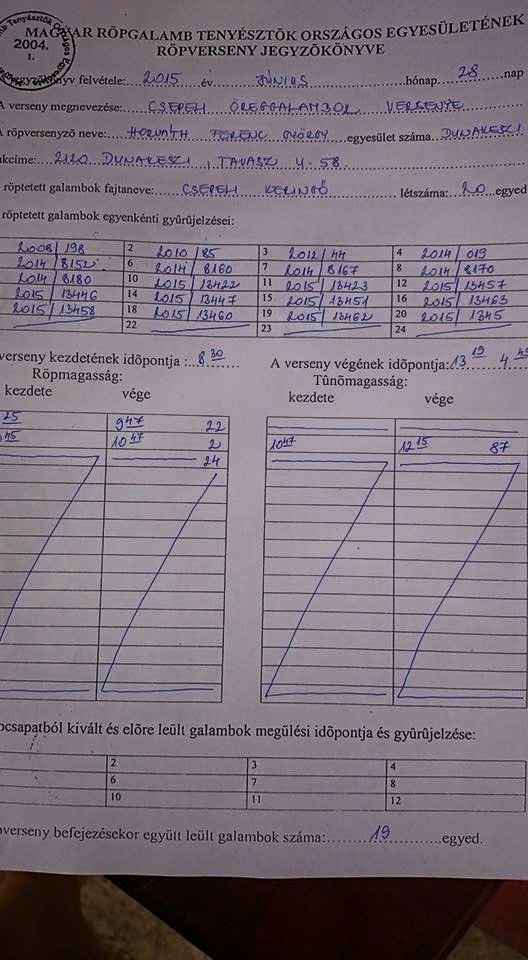 MAGYAR RÖPGALAMB TENYÉSZTŐK ORSZÁGOS EGYESÜLETÉNEK
RÖPVERSENY JEGYZŐKÖNYVE
2004.
1.
felvétele: 2015 év JÚNIUS hónap 28 nap
A verseny megnevezése: CSEPELI ÖREGGALAMBOK VERSENYE
A röpversenyző neve: HORVÁTH FERENC GYÖRGY egyesület száma DUNAKESZI
kcíme: 2120 DUNAKESZI, TAVASZ U. 58.
röptetett galambok fajtaneve: CSEPELI KERINGŐ létszáma: 20 egyed
röptetett galambok egyenkénti gyûrûjelzései:
2008/198 2 2010/85 3 2012/44 4 2014/019
2014/8152 6 2014/8160 7 2014/8167 8 2014/8170
2014/8180 10 2015/13422 11 2015/13423 12 2015/13457
2015/13446 14 2015/13447 15 2015/13451 16 2015/13463
2015/13458 18 2015/13460 19 2015/13462 20 2015/1345
22 23 24
verseny kezdetének idõpontja: 8 30 A verseny végének idõpontja: 13 19 4 49
Röpmagasság: Tûnõmagasság:
kezdete vége kezdete vége
25 9 47 22
45 10 47 2 10 47 12 15 87
24
pcsapatból kivált és elõre leült galambok megülési idõpontja és gyûrûjelzése:
2 3 4
6 7 8
10 11 12
verseny befejezésekor együtt leült galambok száma: 19 egyed.